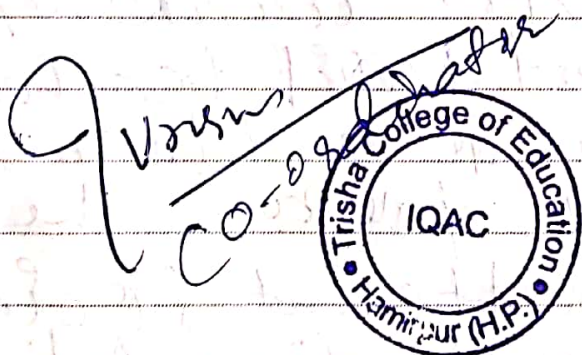 Co-ordinator
Trisha College of Education
IQAC
Hamirpur (H.P.)